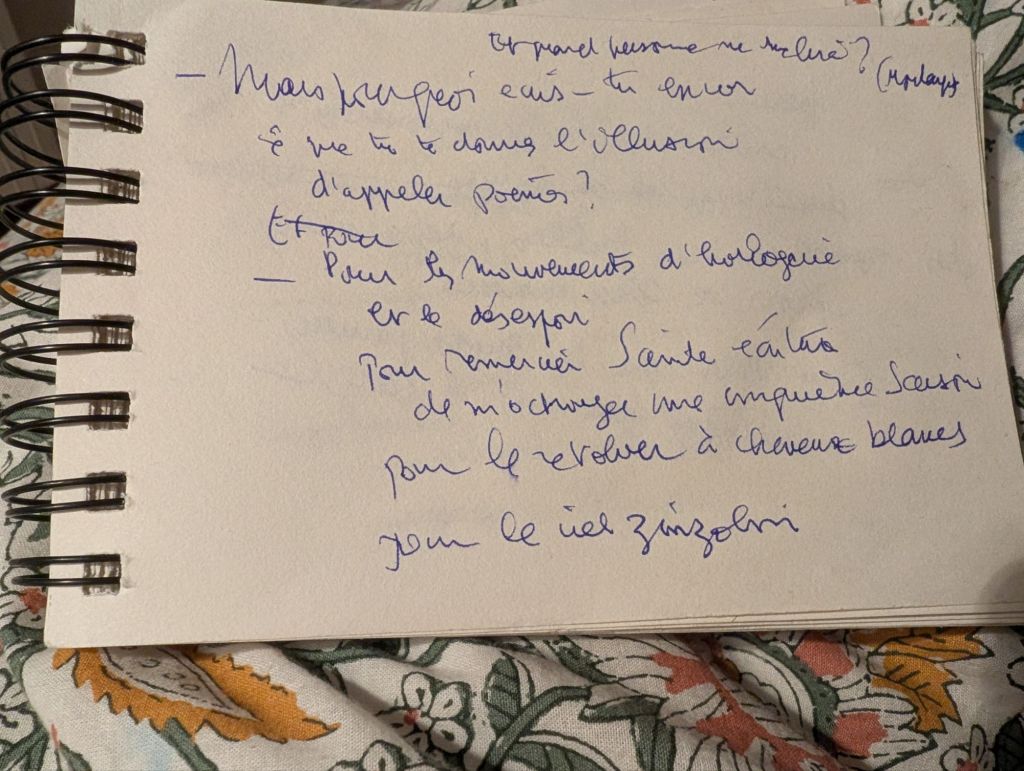 Et quand personne ne me lira ?
– Mais pourquoi écris-tu encor
ce que tu te donnes l'illusion
d'appeler poèmes ?
Et pour
– Pour les mouvements d'horlogerie
et le désespoir
pour remercier Sainte
de m'octroyer une cinquième saison
pour le revolver à cheveux blancs
pour le ciel zinzolin